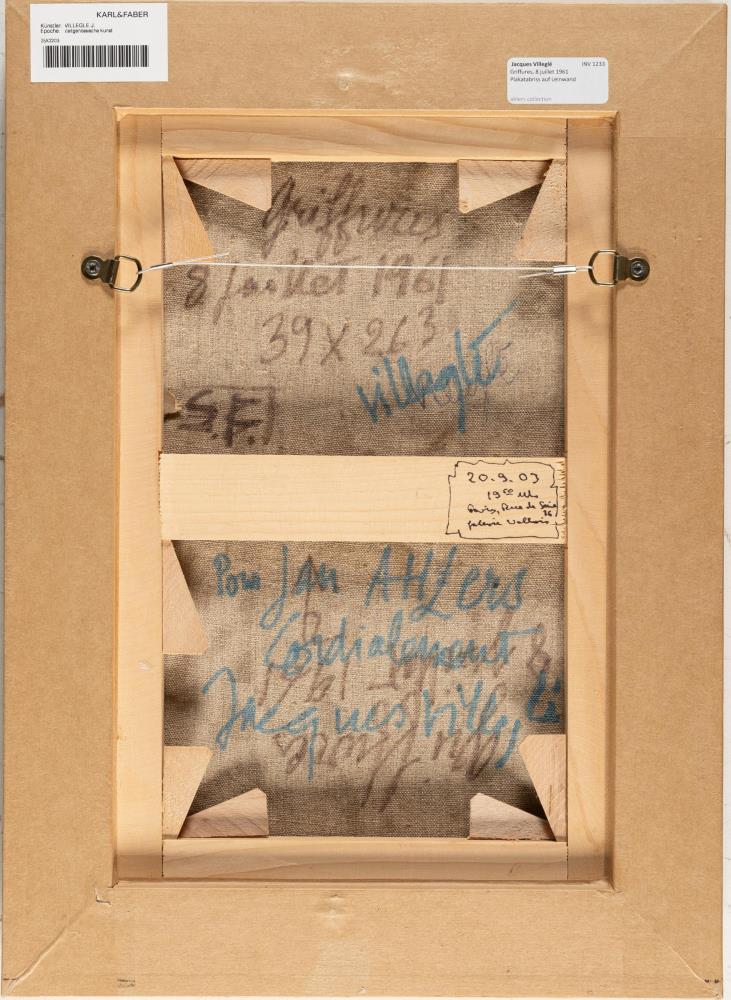 KARL&FABER
Künstler: VILLEGLE J.
Epoche: zeitgenössische Kunst
Jacques Villeglé INV 1233
Griffures, 8 juillet 1961
Plakatabriss auf Leinwand
ahlers collection
Griffures
8 juillet 1961
39 X 263
villeglé
S.F.
20.9.03
19 Uhr
Paris, Rue de Seine
36
galerie Vallois
Pour Jan AHLers
Cordialement
Jacques Villeglé